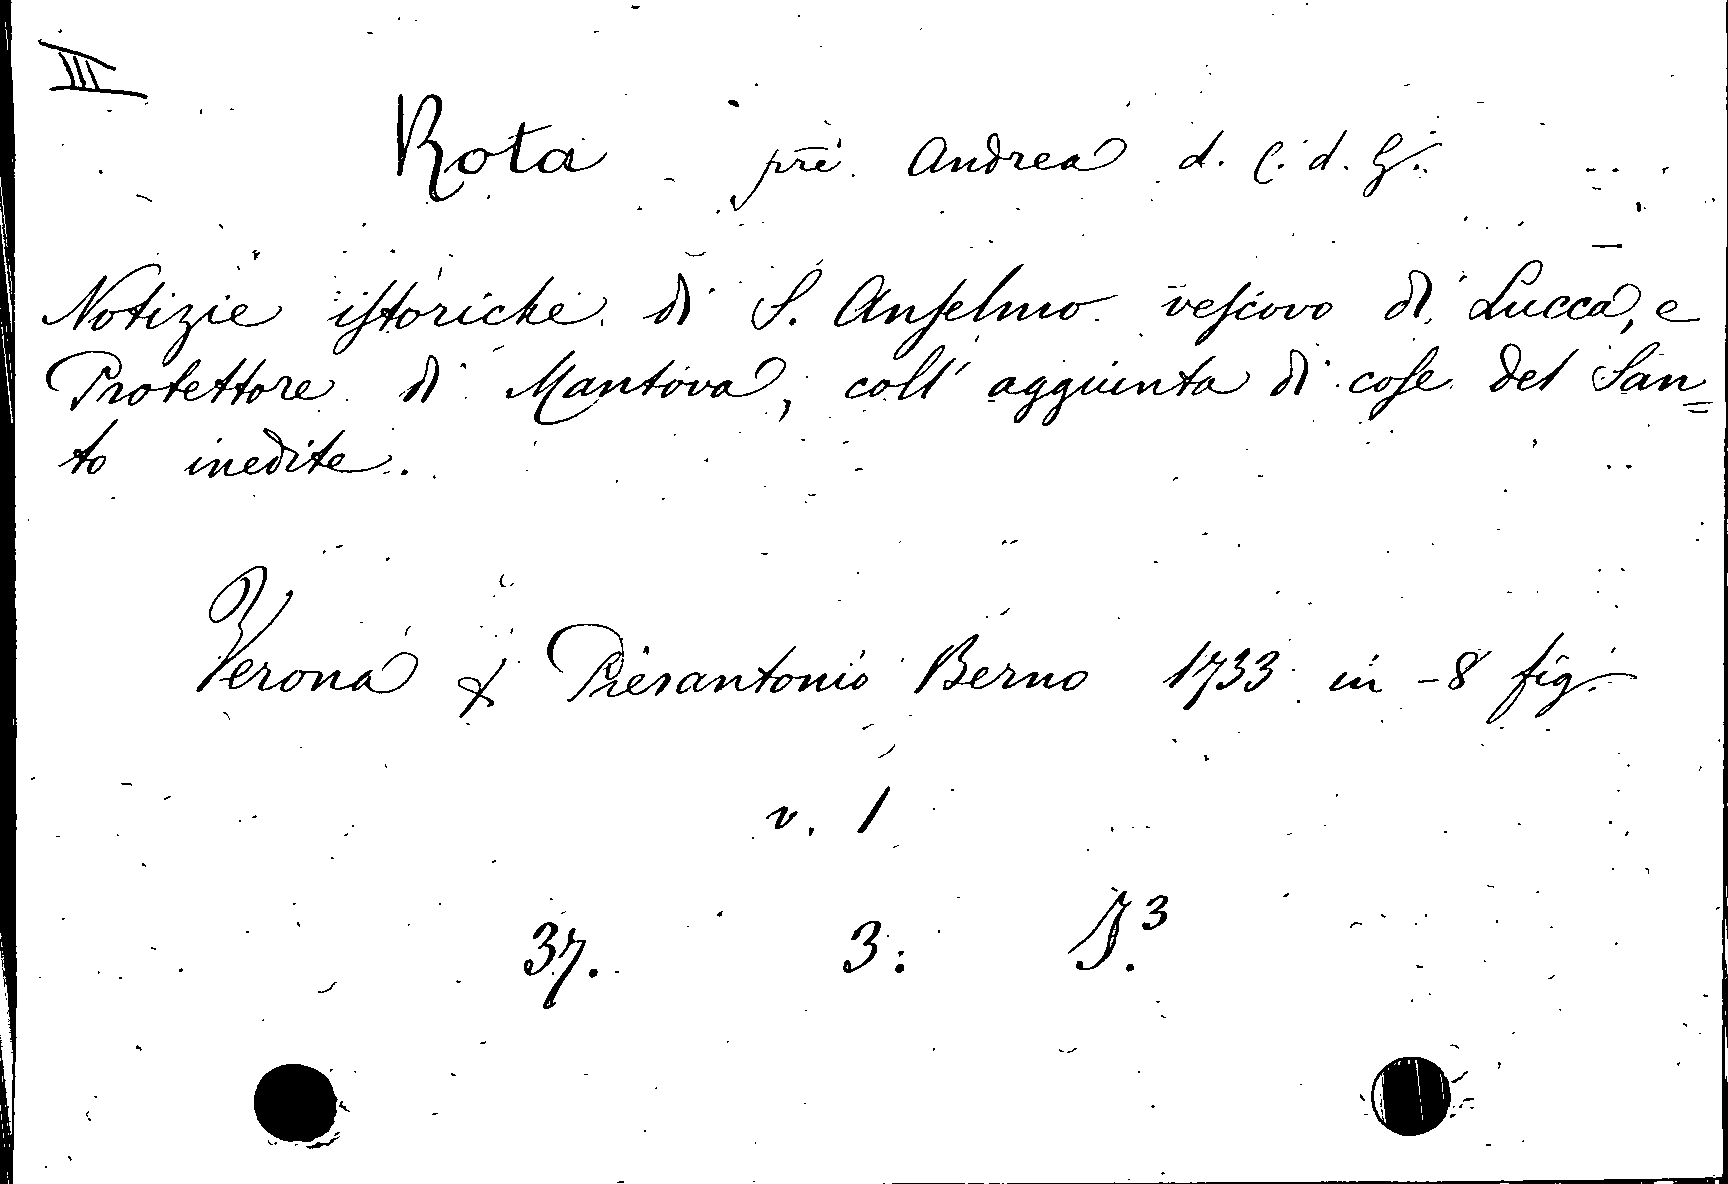 III
Rota prẽ Andrea d. C. d. G.
Notizie iſtoriche di S. Anſelmo veſcovo di Lucca, e
Protettore di Mantova, coll' aggiunta di coſe del San=
to inedite.
Verona x Pierantonio Berno 1733 in -8 fig.
v. 1
37. 3. J.³